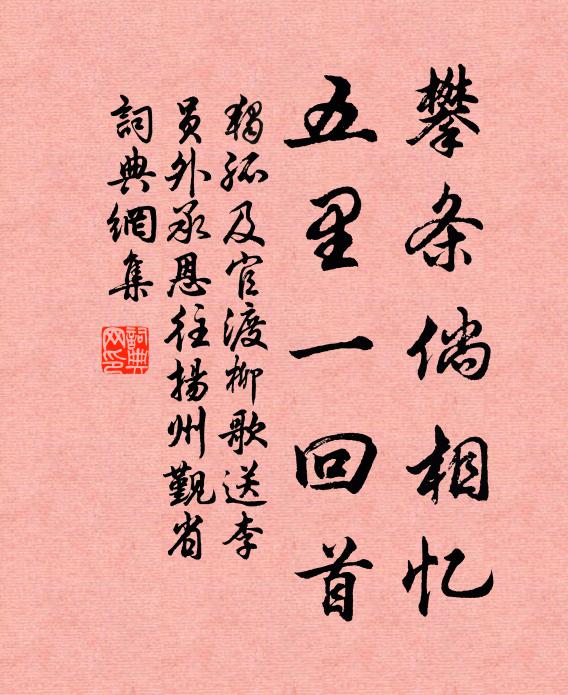 攀条倘相忆
五里一回首
独孤及官渡柳歌送李
员外承恩往扬州觐省
詞典網集
詞典網印